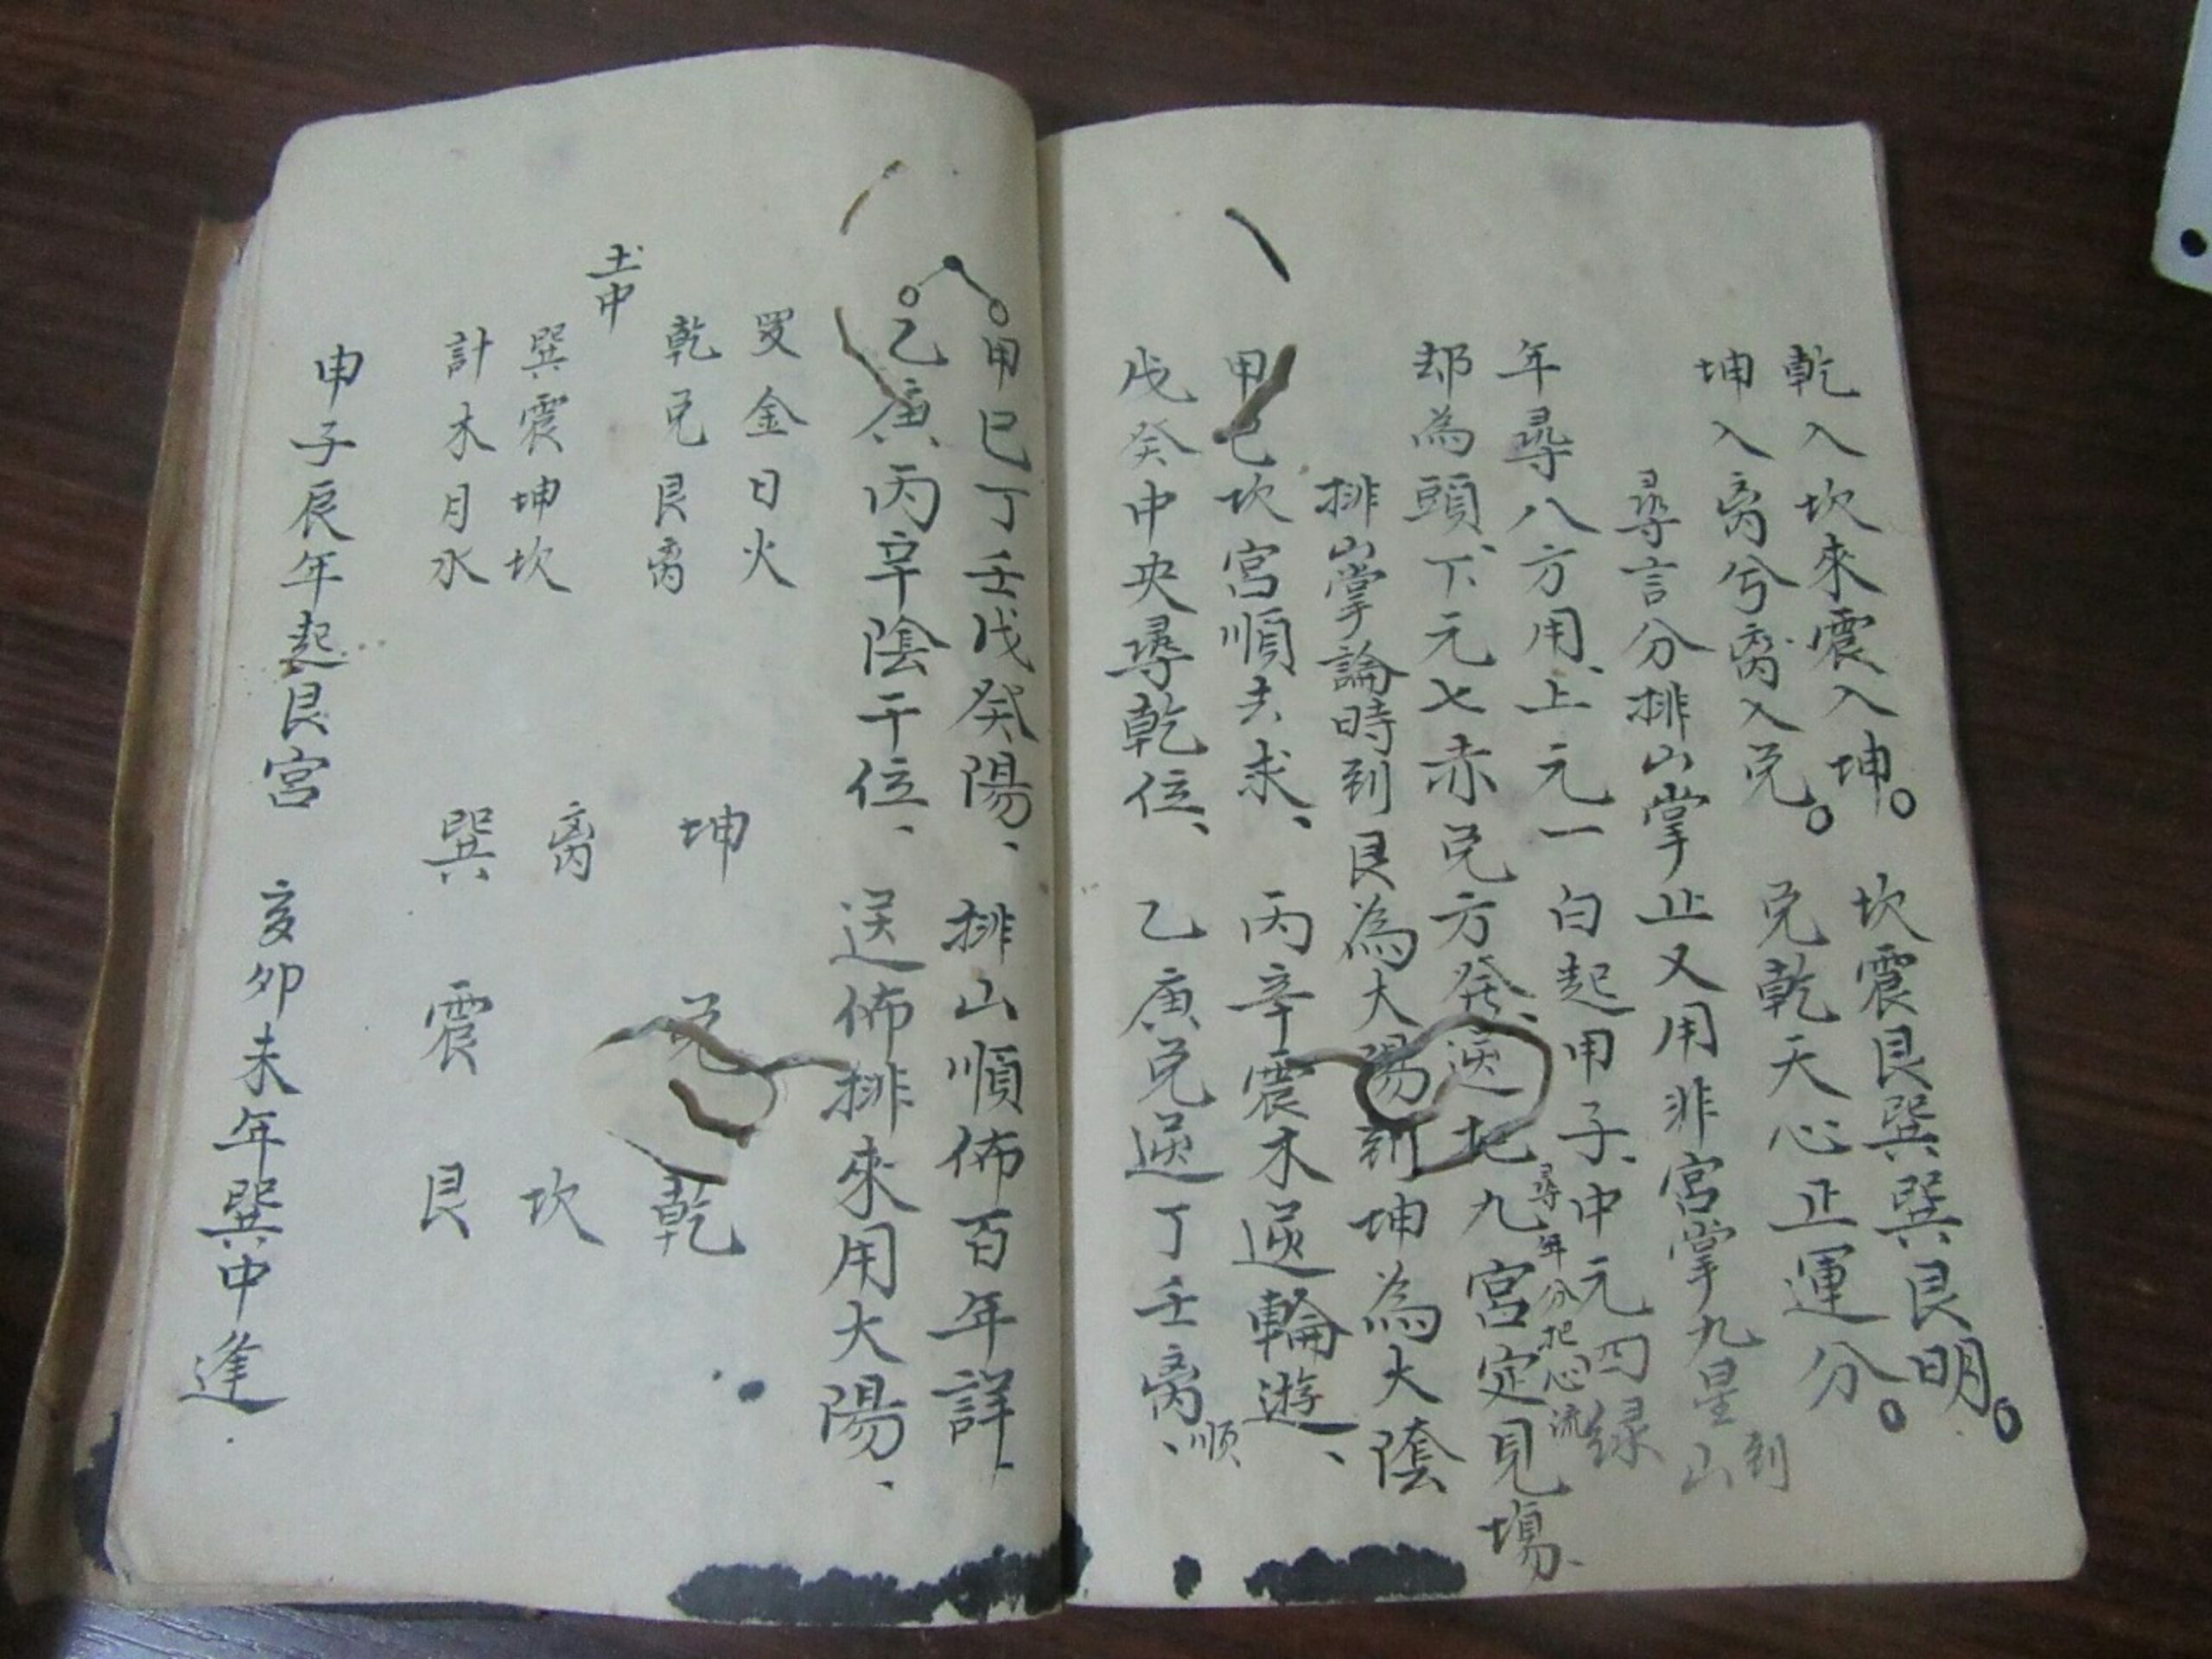 乾入坎來震入坤。坎震艮巽巽艮明。
坤入离兮离入兑。兑乾天心正運分。
尋言分排山掌止又用非宮掌九星到山
年尋八方用、上元一白起甲子、中元四绿
尋年分把心流
却為頭、下元七赤兑方發、逆九宮定見場、
排山掌論時到艮為大陽到坤為大陰
甲己坎宮順去求、丙辛震木逆輪遊、
戊癸中央尋乾位、乙庚兑逆丁壬离、顺
甲己丁壬戊癸陽、排山順佈百年詳、
乙庚丙辛陰干位、送佈排來用大陽、
金日火
乾兑艮离
土中
巽震坤坎
計木月水
坤兑乾
离坎
巽震艮
申子辰年起艮宮
亥卯未年巽中逢